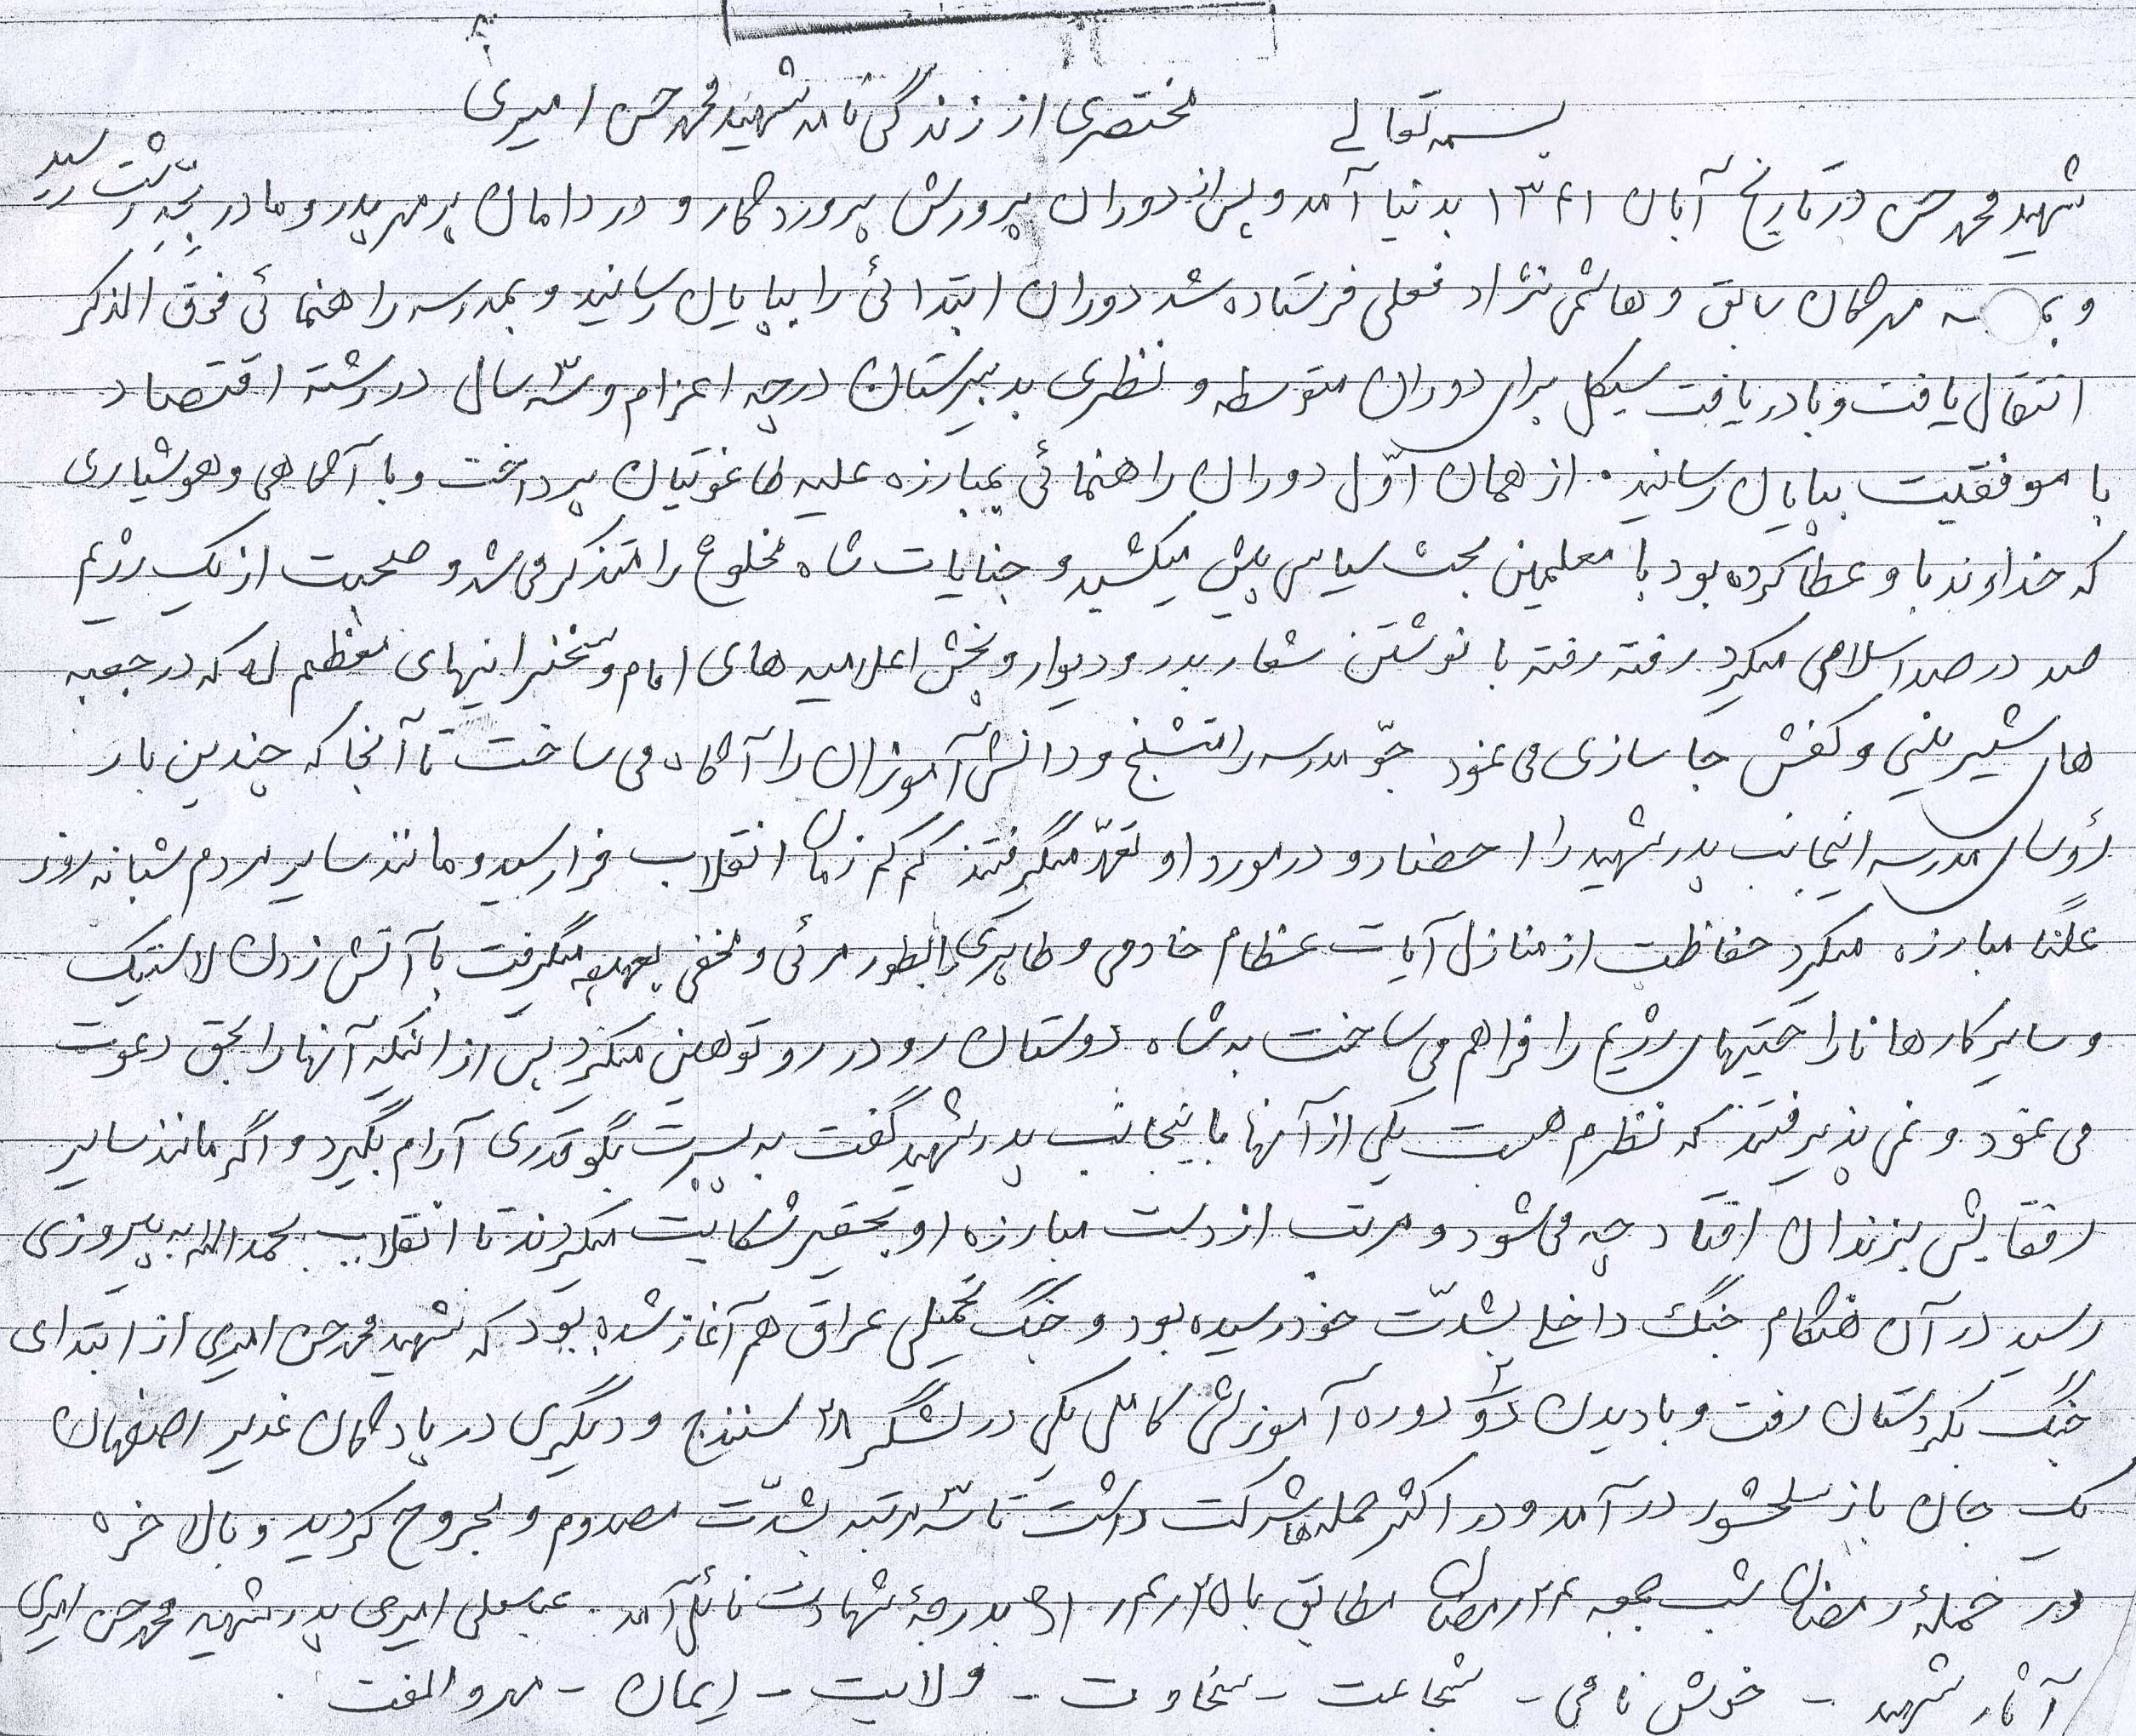 بسمه تعالی مختصری از زندگی نامه شهید محمد حسن امیری
شهید محمد حسن در تاریخ آبان ۱۳۴۱ بدنیا آمد و پس از دوران پرورش پروردگار و در دامان پر مهر پدر و مادر برشت رسید
و مهرگان سابق و هاشمی نژاد فعلی فرستاده شد دوران ابتدائی را بپایان رسانید و بمدرسه راهنمائی فوق الذکر
انتقال یافت و با دریافت سیکل برای دوران متوسطه و نظری بدبیرستان درچه اعزام و سه سال در رشته اقتصاد
با موفقیت بپایان رسانید . از همان اوّل دوران راهنمائی بمبارزه علیه طاغوتیان پرداخت و با آگاهی و هوشیاری
که خداوند باو عطا کرده بود با معلمین بحث سیاسی پیش میکشید و جنایات شاه مخلوع را متذکر می شد و صحبت از یک رژیم
صد در صد اسلامی میکرد رفته رفته با نوشتن شعار بدر و دیوار و پخش اعلامیه های امام و سخنرانیهای معظم له که در جعبه
های شیرینی و کفش جا سازی می نمود جوّ مدرسه را متشنج و دانش آموزان را آگاه می ساخت تا آنجا که چندین بار
رؤسای مدرسه اینجانب پدر شهید را احضار و در مورد او تعهّد میگرفتند کم کم زمان انقلاب فرا رسید و مانند سایر مردم شبانه روز
علناً مبارزه میکرد حفاظت از منازل آیات عظام خادمی و طاهری را بطور مرئی و مخفی بعهده میگرفت با آتش زدن لاستیک
و سایر کارها ناراحتیهای رژیم را فراهم می ساخت به شاه دوستان رو در رو توهین میکرد پس از اینکه آنها را بحق دعوت
می نمود و نمی پذیرفتند که نظرم هست یکی از آنها باینجانب پدر شهید گفت به پسرت بگو قدری آرام بگیرد و اگر مانند سایر
رفقایش بزندان افتاد چه می شود و مرتب از دست مبارزه او بحقیر شکایت میکردند تا انقلاب بحمدالله به پیروزی
رسید در آن هنگام جنگ داخلی بشدّت خود رسیده بود و جنگ تحمیلی عراق هم آغاز شده بود که شهید محمد حسن امیری از ابتدای
جنگ بکردستان رفت و با دیدن دو دوره آموزش کامل یکی در لشگر ۲۸ سنندج و دیگری در پادگان غدیر اصفهان
یک جان باز سلحشور در آمد و در اکثر حمله ها شرکت داشت تا سه مرتبه بشدّت مصدوم و مجروح گردید و بالاخره
در حملهٔ رمضان شب جمعه ۲۴ رمضان مطابق با ۲۵ر۴ر۶۱ بدرجهٔ شهادت نائل آمد . عباسعلی امیری پدر شهید محمد حسن امیری
آثار شهید - خوش نامی - شجاعت - سخاوت - ولایت - ایمان - مهر و الفت .